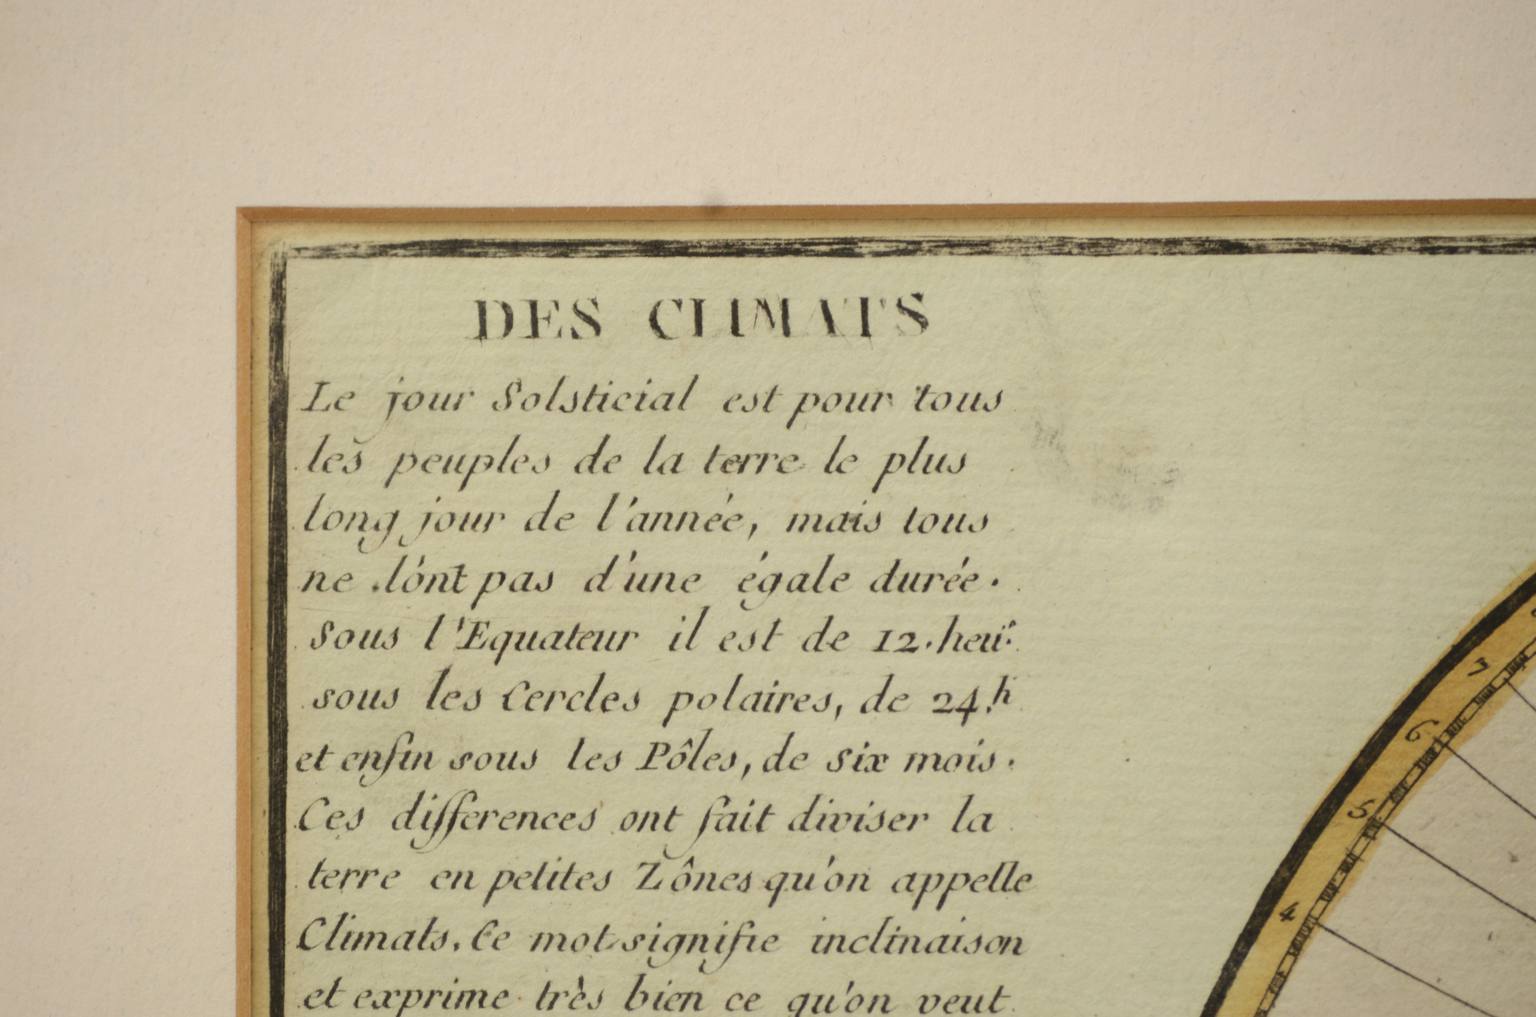 DES CLIMATS
Le jour Solsticial est pour tous
les peuples de la terre le plus
long jour de l'année, mais tous
ne l'ont pas d'une égale durée.
Sous l'Equateur il est de 12. heur.
sous les Cercles polaires, de 24.h
et enfin sous les Pôles, de six mois.
Ces differences ont fait diviser la
terre en petites Zônes qu'on appelle
Climats. Ce mot signifie inclinaison
et exprime très bien ce qu'on veut
7
6
5
4